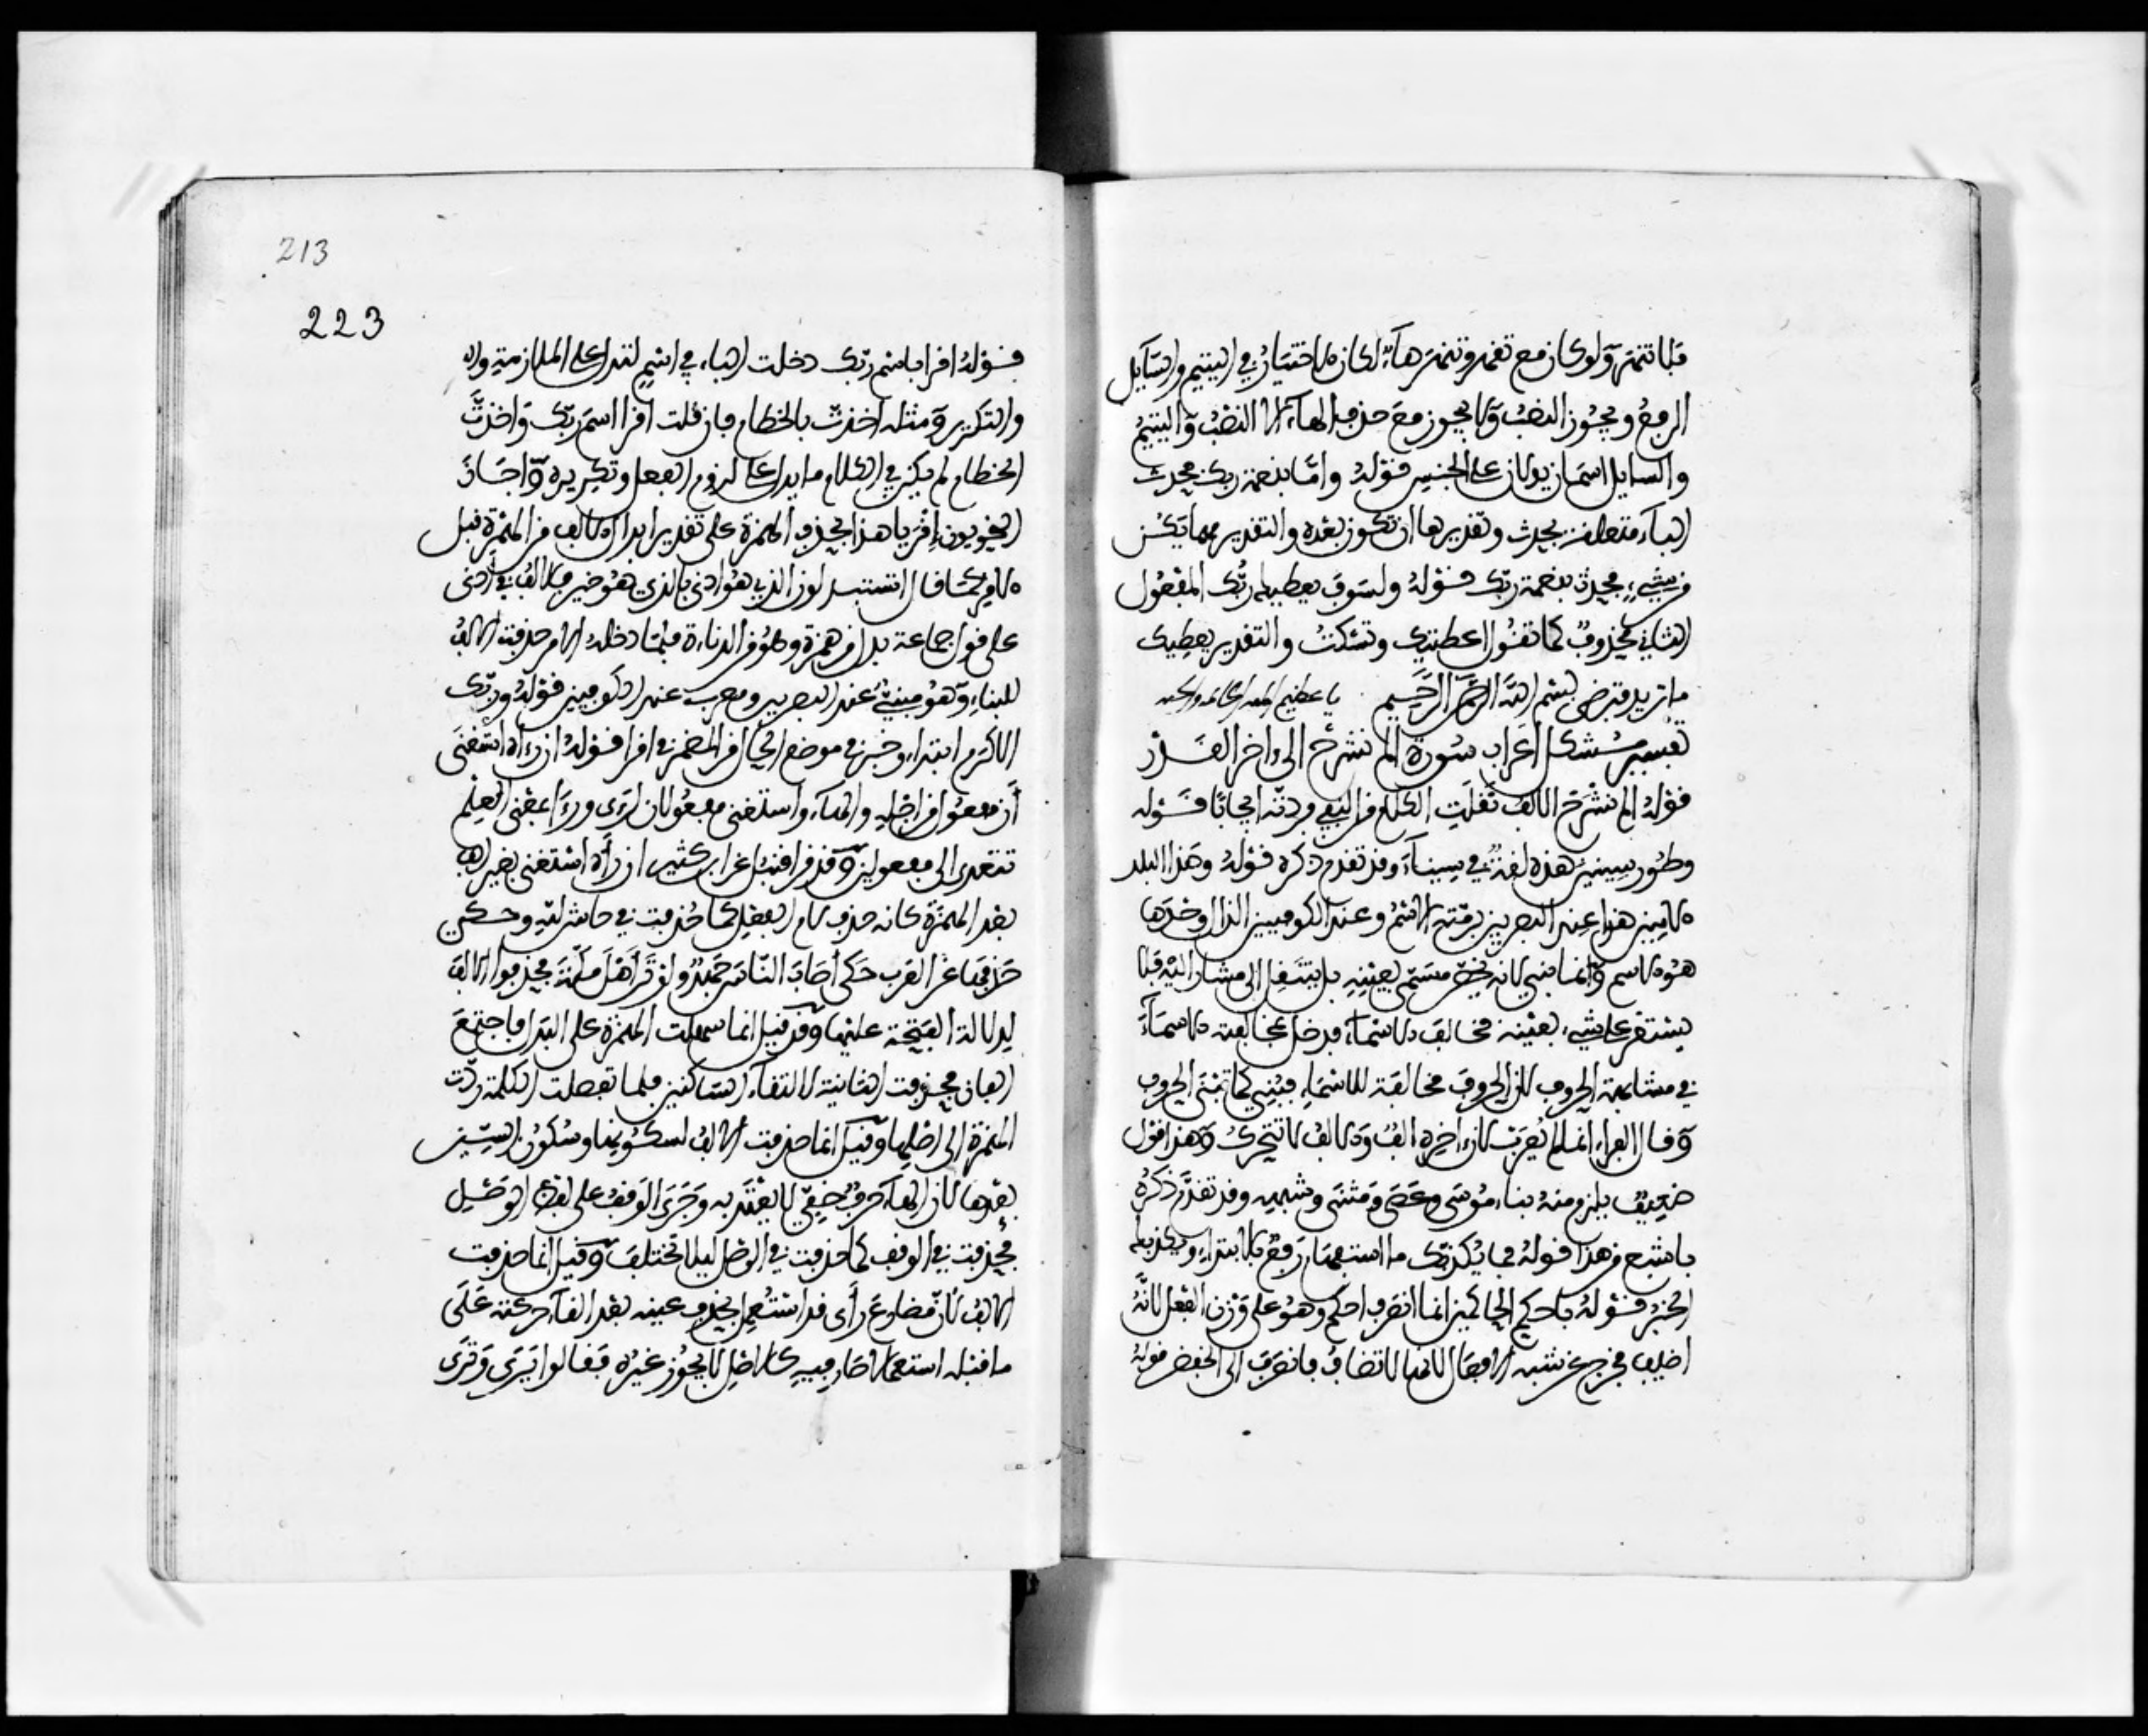 فلا تنهر ولو كان مع تقهر وتنهر هاء لكان الاختيار في اليتيم والسايل
الرفع ويجوز النصب ولا يجوز مع حذف الهاء الا النصب واليتيم
والسايل اسمان يدلان على الجنس قوله واما بنعمة ربك فحدث
الباء متعلقة بحدث وتقديرها ان تكون بعده والتقدير مهما يكن
من شيء فحدث بنعمة ربك قوله ولسوف يعطيك ربك المفعول
الثاني محذوف كما تقول اعطيتك وتسكت والتقدير يعطيك
ما تريد فترضى بسم الله الرحمن الرحيم يا عظيم
تفسير مشكل اعراب سورة الم نشرح الى ءاخر القدر
قوله الم نشرح الالف نقلت الكلام من النفي فردته ايجابا قوله
وطور سينين هذه لغة في سيناء وقد تقدم ذكره قوله وهذا البلد
الامين هذا عند البصريين برمته الاسم وعند الكوفيين الذال وحدها
هو الاسم وانما بني لانه مسمى بعينه بل ينتقل الى مشار اليه فلا
يستقر على شيء بعينه مخالف الاسماء فدخل بمخالفته الاسماء
في مشابهة الحروف لان الحروف مخالفة للاسماء فبني كما تبنى الحروف
وقال الفراء انما لم يعرب لان ءاخره الف والالف لا تتحرك وهذا قول
ضعيف يلزم منه بناء موسى وعصى ومثنى وشبهه وقد تقدم ذكره
باشبع من هذا قوله فما يكذبك ما استفهام رفع بالابتداء ويكذبك
الخبر قوله باحكم الحاكمين انما انصرف احكم وهو على وزن الفعل لانه
اضيف فخرج عن شبه الافعال لانها لا تضاف فانصرف الى الخفض قوله
213
223
قوله اقرا باسم ربك دخلت الباء في اسم لتدل على الملازمة وال
والتكرير ومثله اخذت بالخطام فان قلت اقرا اسم ربك واخذت
الخطام لم يكن في الكلام ما يدل على لزوم الفعل وتكريره واجاز
النحويون اقر يا هذا بحذف الهمزة على تقدير ابدال الالف من الهمزة قبل
الامر كما قال اتستبدلون الذي هو ادنى بالذي هو خير فالالف في ادنى
على قول جماعة بدل من همزة وهو من الدناءة فلما دخله الامر حذفت الالف
للبناء وهو مبني عند البصريين ومعرب عند الكوفيين قوله وربك
الاكرم ابتداء وخبر في موضع الحال من المضمر في اقرا قوله ان رءاه استغنى
ان مفعول من اجله والهاء واستغنى مفعولان لرءى ورءا بمعنى العلم
تتعدى الى مفعولين وقد قرا قنبل عن ابن كثير ان رأه استغنى بغير الف
بعد الهمزة كانه حذف لام الفعل كما حذفت في حاش لله وحكي
حذفها عن العرب حكى اصاب الناس جهد ولو تر اهل مكة فحذفوا الالف
لدلالة الفتحة عليها وقد قيل انما سهلت الهمزة على البدل فاجتمع
الفان فحذفت الثانية لالتقاء الساكنين فلما تفصلت الكلمة ردت
الهمزة الى اصلها وقيل انما حذفت الالف لسكونها وسكون السين
بعدها لان الهاء حرف خفي لا يعتد به وجرى الوقف على لفظ الوصل
فحذفت في الوقف كما حذفت في الوصل ليلا تختلف وقيل انما حذفت
الالف لان مضارع رأى قد استعمل بحذف عينه بعد القاء حركته على
ما قبله استعمالا صار فيه كالاصل لا يجوز غيره فقالوا يرى وترى